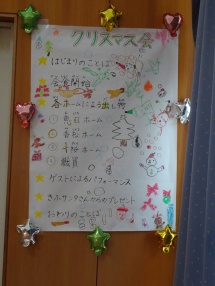 クリスマス会
はじまりのことば
会食開始
各ホームによる出し物
① ホーム
② ホーム
③ ホーム
④ 職員
ゲストによるパフォーマンス
サンタさんからのプレゼント
おわりのことば